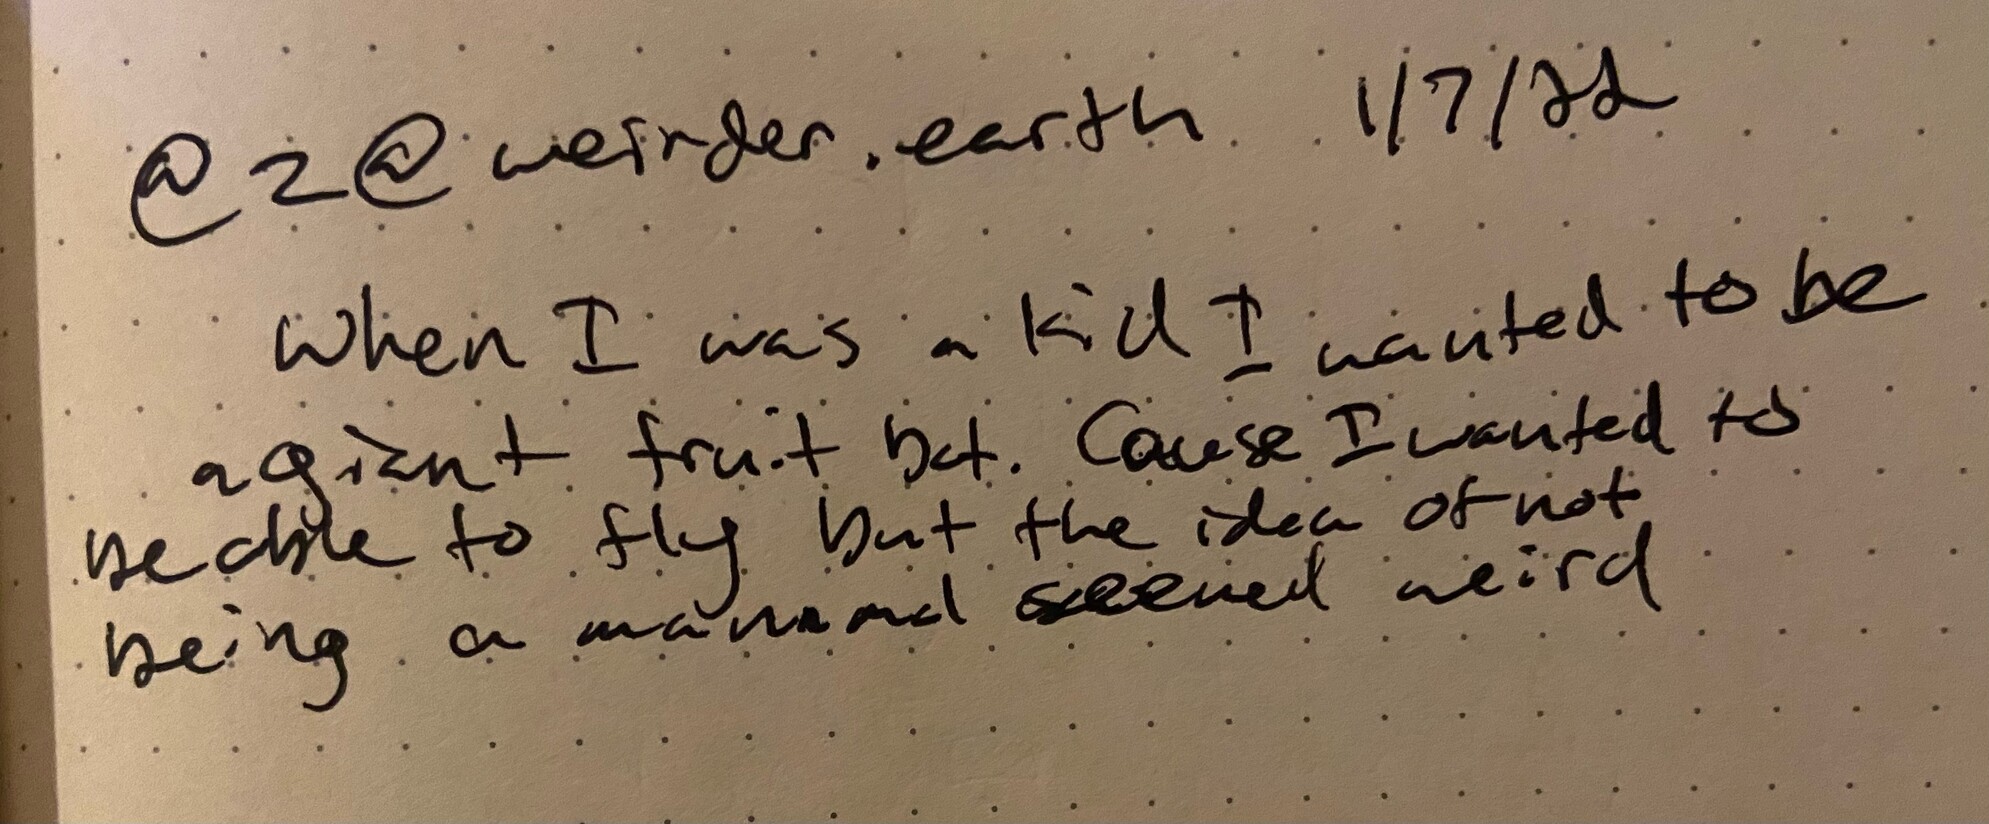 @z@weirder.earth 1/7/22
When I was a kid I wanted to be
a giant fruit bat. Cause I wanted to
be able to fly but the idea of not
being a mammal seemed weird